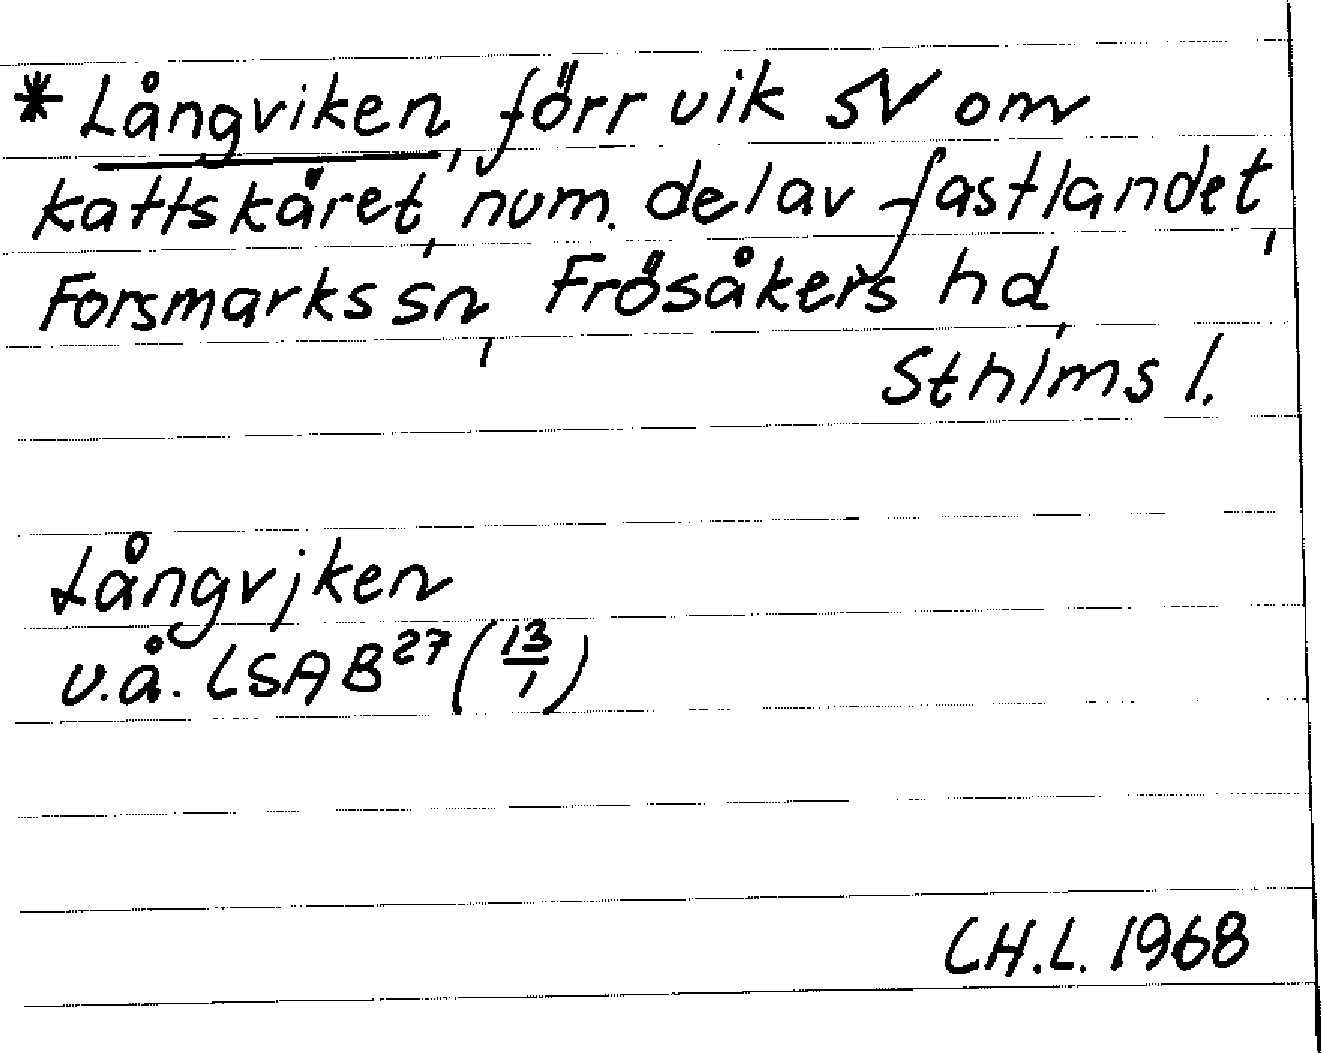 * Långviken, förr vik SV om
Kattskäret, num. del av fastlandet,
Forsmarks sn, Frösåkers hd,
Sthlms l.
Långvjken
u.å. LSA B27 (13/1)
CH.L. 1968